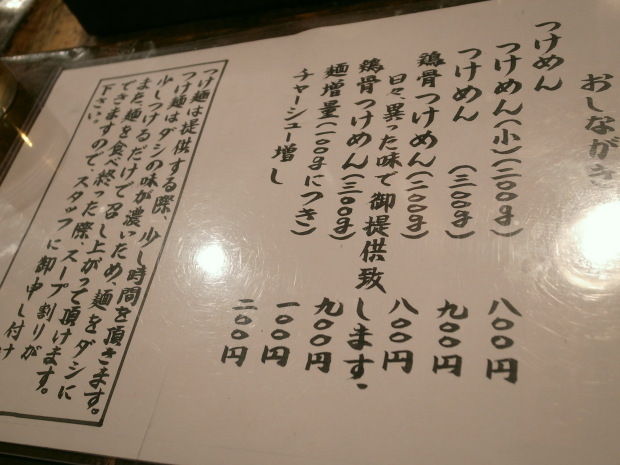 おしながき
つけめん
つけめん(小)(二〇〇g) 八〇〇円
つけめん (三〇〇g) 九〇〇円
鶏骨つけめん(二〇〇g) 八〇〇円
日々異った味で御提供致します.
鶏骨つけめん(三〇〇g) 九〇〇円
麺増量(一〇〇gにつき) 一〇〇円
チャーシュー増し 二〇〇円
つけ麺は提供する際、少し時間を頂きます。
つけ麺はダシの味が濃いため、麺をダシに
少しつけるだけで召し上がって頂けます。
また麺を食べ終った際、スープ割りが
できますので、スタッフに御申し付け
下さい。